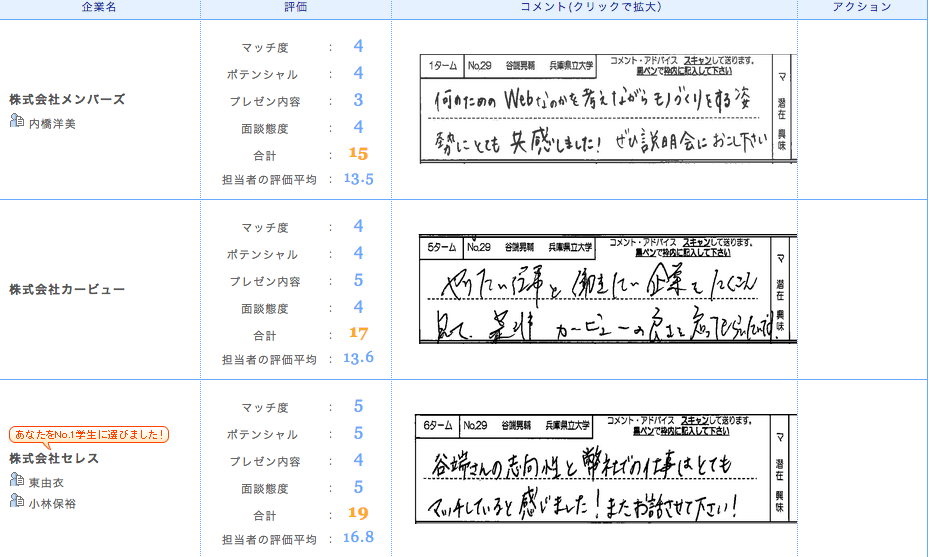 企業名 評価 コメント(クリックで拡大) アクション
株式会社メンバーズ
内橋洋美
マッチ度 : 4
ポテンシャル : 4
プレゼン内容 : 3
面談態度 : 4
合計 : 15
担当者の評価平均 : 13.5
1ターム No,29 谷端晃輔 兵庫県立大学
コメント・アドバイス スキャンして送ります。
黒ペンで枠内に記入して下さい
何のための Webなのかを考えながらモノづくりをする姿
勢にとても共感しました! ぜひ説明会にお こし下さい
マ
潜在
興味
株式会社カービュー
マッチ度 : 4
ポテンシャル : 4
プレゼン内容 : 5
面談態度 : 4
合計 : 17
担当者の評価平均 : 13.6
5ターム No,29 谷端晃輔 兵庫県立大学
コメント・アドバイス スキャンして送ります。
黒ペンで枠内に記入して下さい
やりたい仕事と働きたい企業をたくさん
見て、是非 カービューの良さを知ってもらいたいです。
マ
潜在
興味
あなたをNo.1学生に選びました!
株式会社セレス
東由衣
小林保裕
マッチ度 : 5
ポテンシャル : 5
プレゼン内容 : 4
面談態度 : 5
合計 : 19
担当者の評価平均 : 16.8
6ターム No,29 谷端晃輔 兵庫県立大学
コメント・アドバイス スキャンして送ります。
黒ペンで枠内に記入して下さい
谷端さんの志向性と弊社での仕事はとても
マッチしていると感じました!またお話させて下さい!
マ
潜在
興味